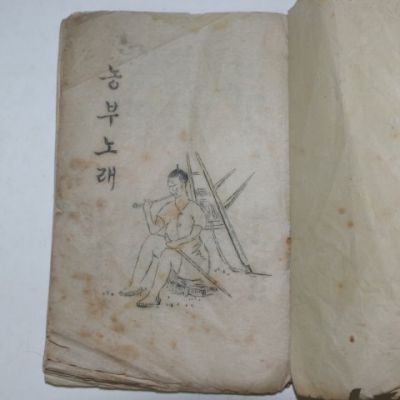 농부노래